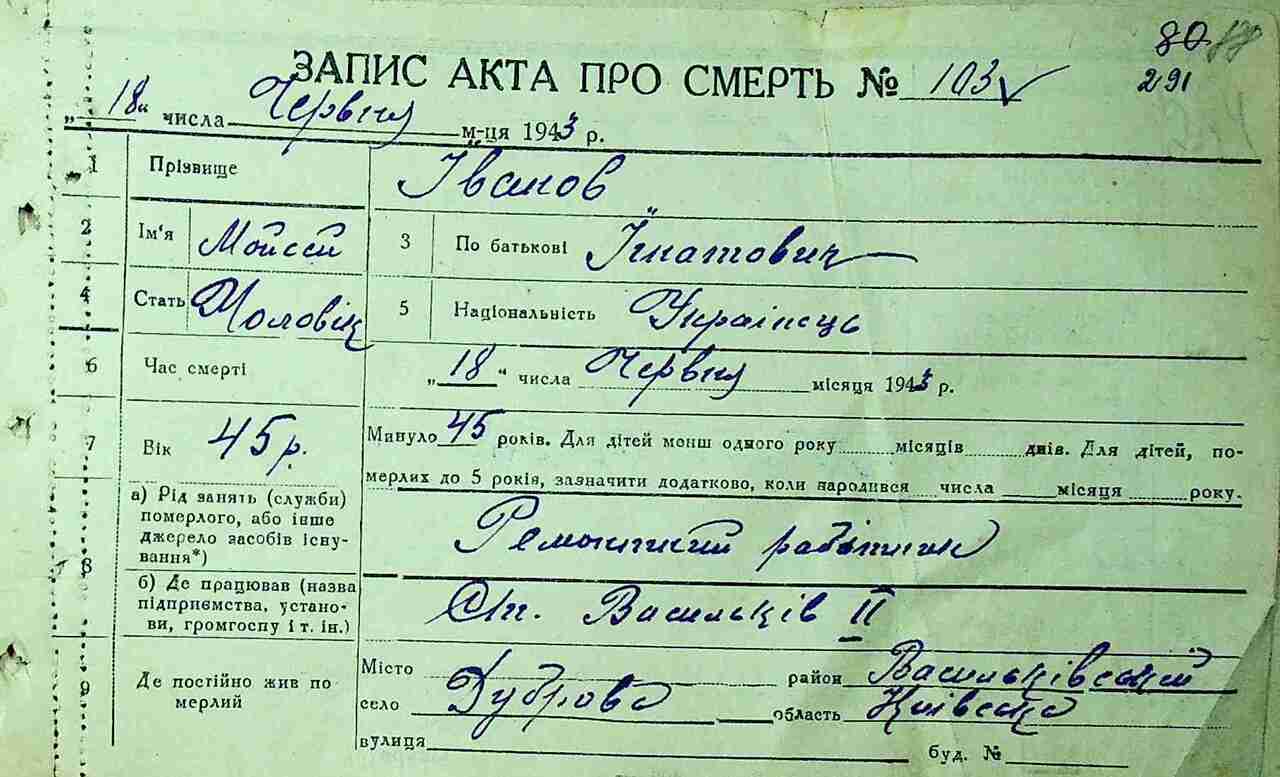 80 88
291
ЗАПИС АКТА ПРО СМЕРТЬ № 103 √
„18" числа Червня м-ця 1943 р.
1 Прізвище Іванов
2 Ім'я Мойсей 3 По батькові Ігнатович
4 Стать Чоловік 5 Національність Українець
6 Час смерті „18" числа Червня місяця 1943 р.
7 Вік 45 р. Минуло 45 років. Для дітей менш одного року місяців днів. Для дітей, по-
мерлих до 5 років, зазначити додатково, коли народився числа місяця року.
8 а) Рід занять (служби)
померлого, або інше
джерело засобів існу-
вання*)
Ремонтний робітник
б) Де працював (назва
підприємства, устано-
ви, громгоспу і т. ін.)
Ст. Васильків II
9 Де постійно жив по
мерлий
Місто район Васильківський
село Дуброва область Київська
вулиця буд. №